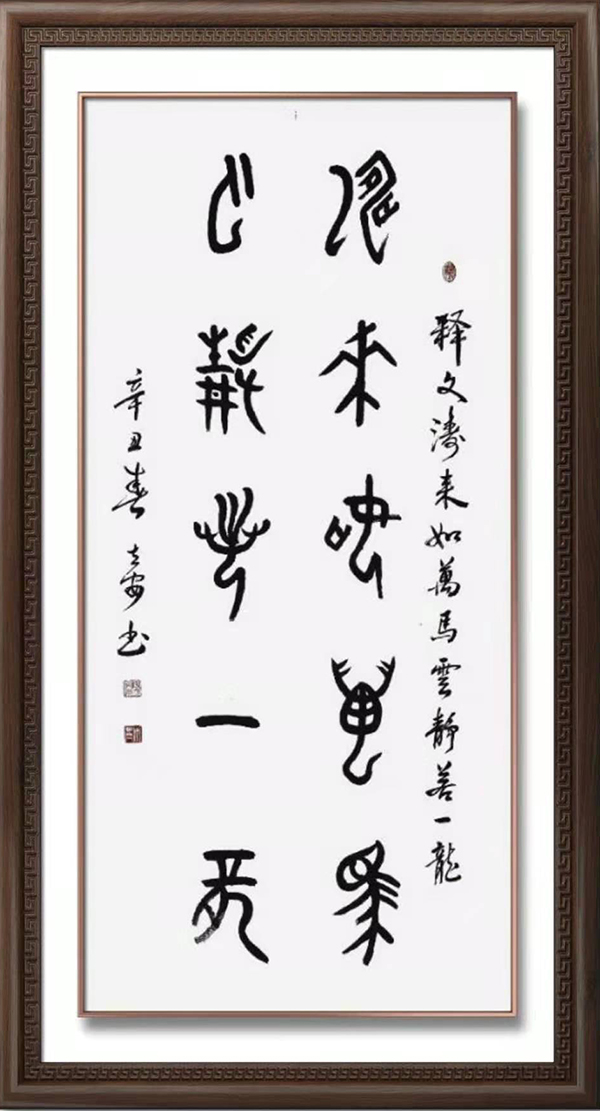 释文濤来如萬馬雲静若一龍
濤来如萬馬
云静若一龍
辛丑春安书